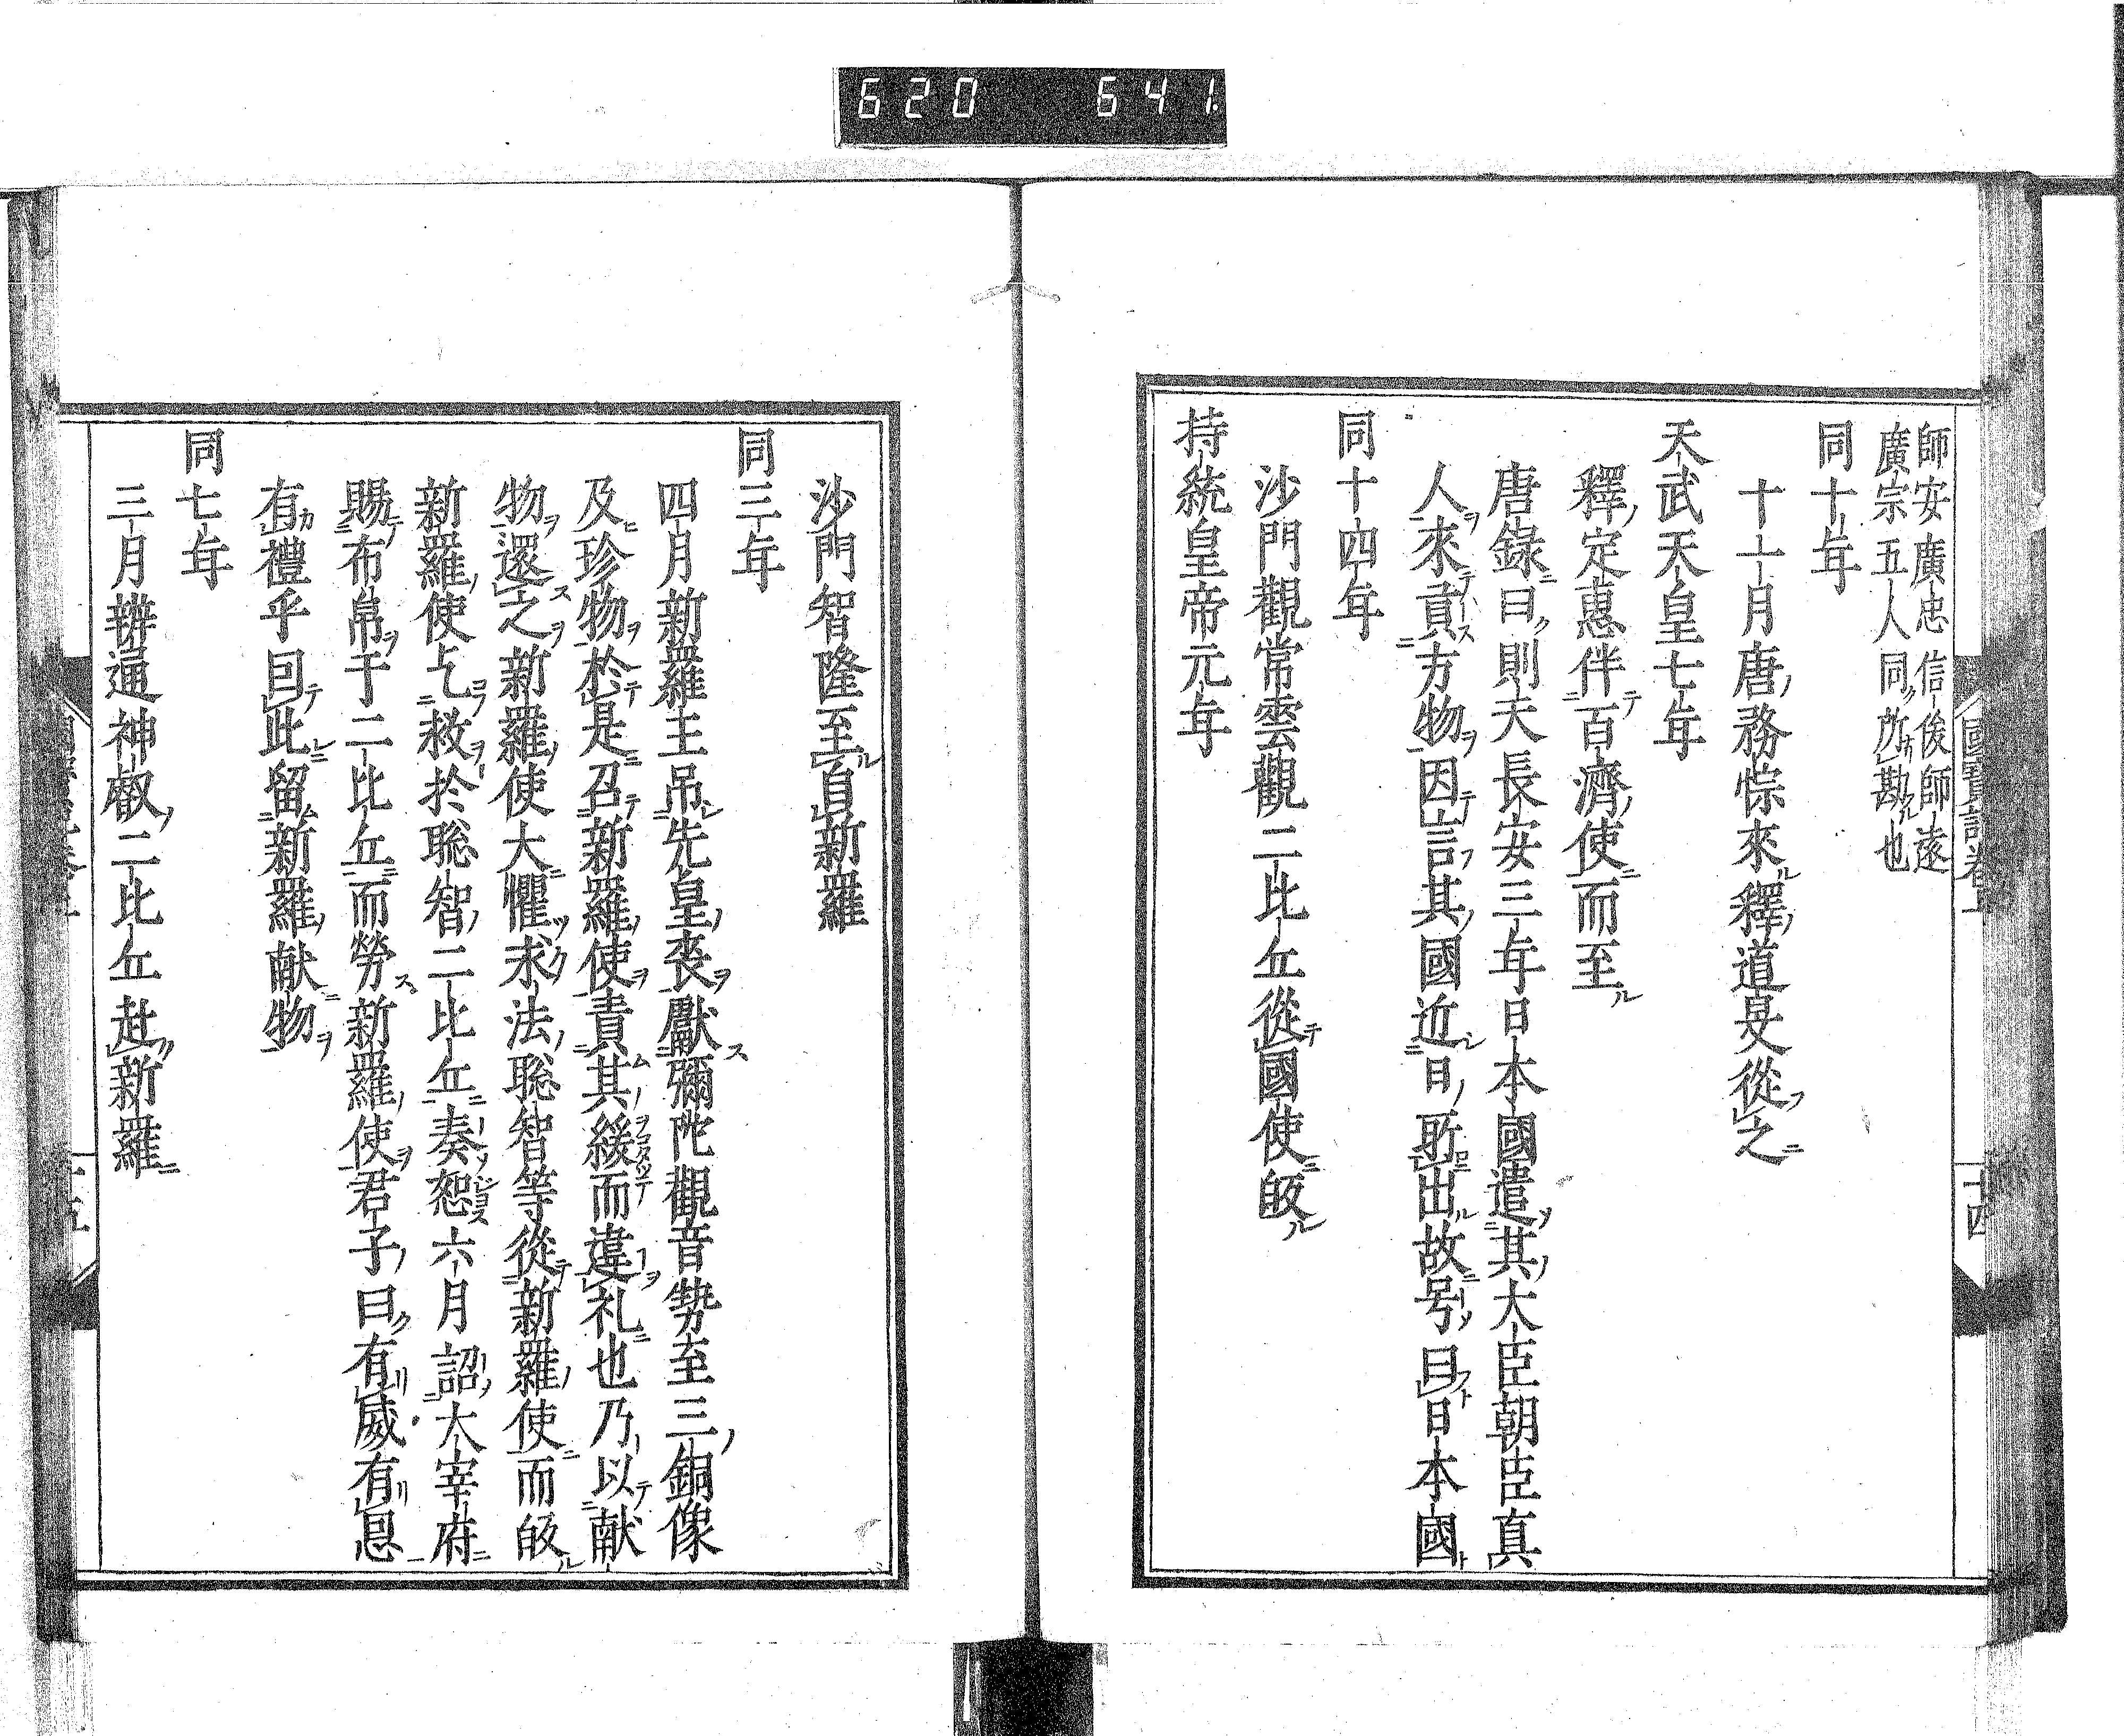 620 641
師安廣忠信俊師遠
廣宗五人同所勘也
同十年
十一月唐務悰來釋道㝎從之
天武天皇七年
釋定惠伴百濟使而至
唐錄曰則天長安三年日本國遣其大臣朝臣真
人來貢方物因言其國近日所出故号曰日本國
同十四年
沙門觀常雲觀二比丘從國使皈
持統皇帝元年
國寶記卷上
十四
沙門智隆至自新羅
同三年
四月新羅王吊先皇喪獻彌陀觀音勢至三銅像
及珍物於是召新羅使責其緩而違礼也乃以献
物還之新羅使大懼求法聡智等從新羅使而皈
新羅使乞救於聡智二比丘奏恕六月詔大宰府
賜布帛于二比丘而勞新羅使君子曰有威有恩
有禮乎回此留新羅献物
同七年
三月辨通神叡二比丘赴新羅